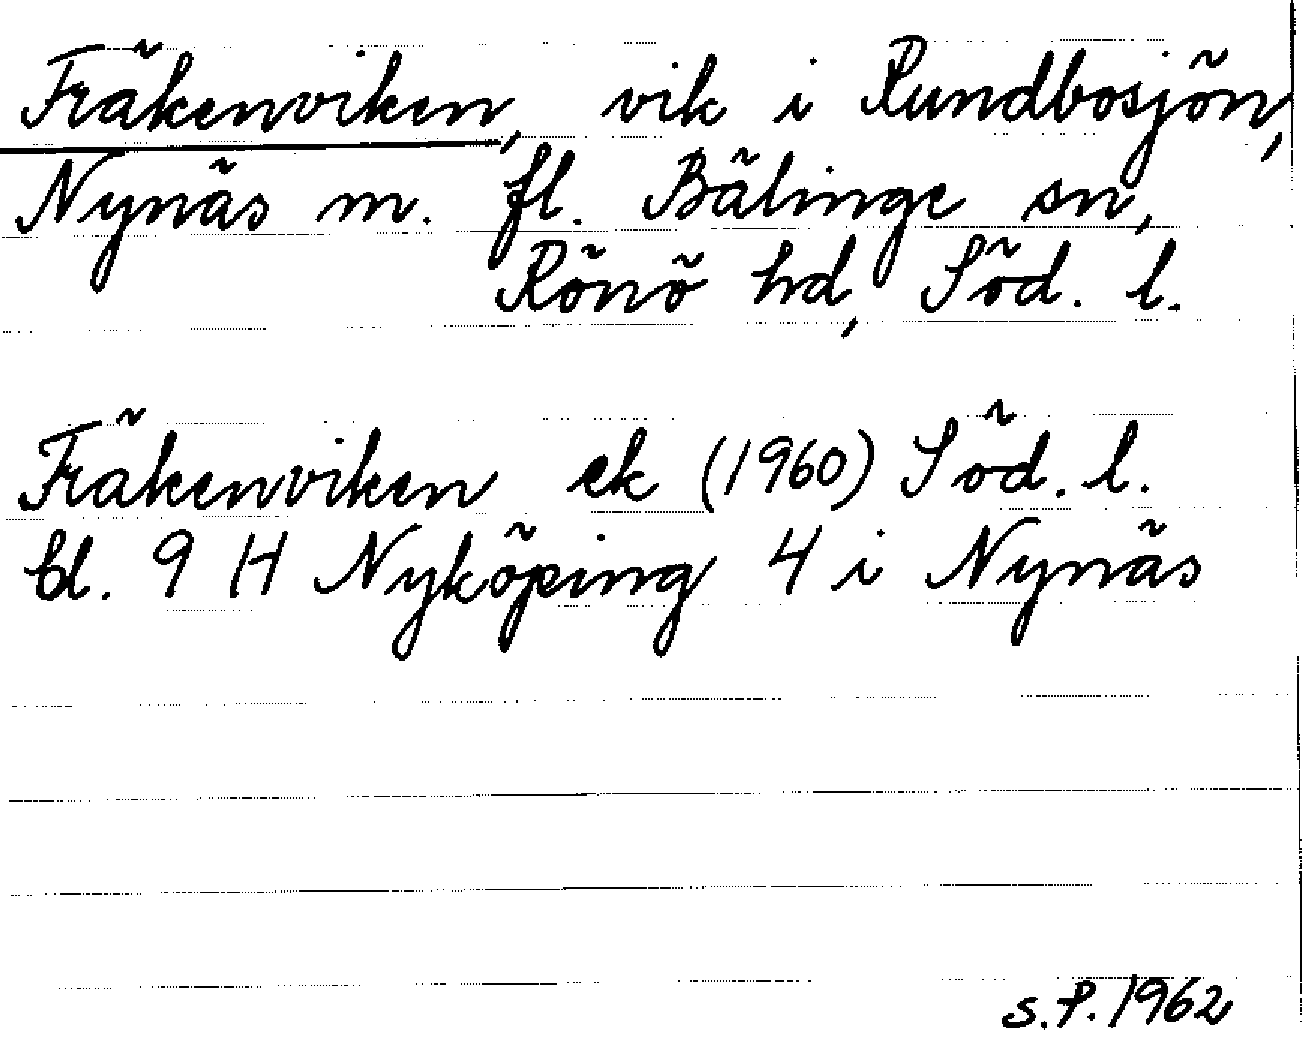 Fräkenviken, vik i Rundbosjön,
Nynäs m. fl. Bälinge sn,
Rönö hd, Söd. l.
Fräkenviken ek (1960) Söd. l.
bl. 9 H Nyköping 4 i Nynäs
S.P. 1962